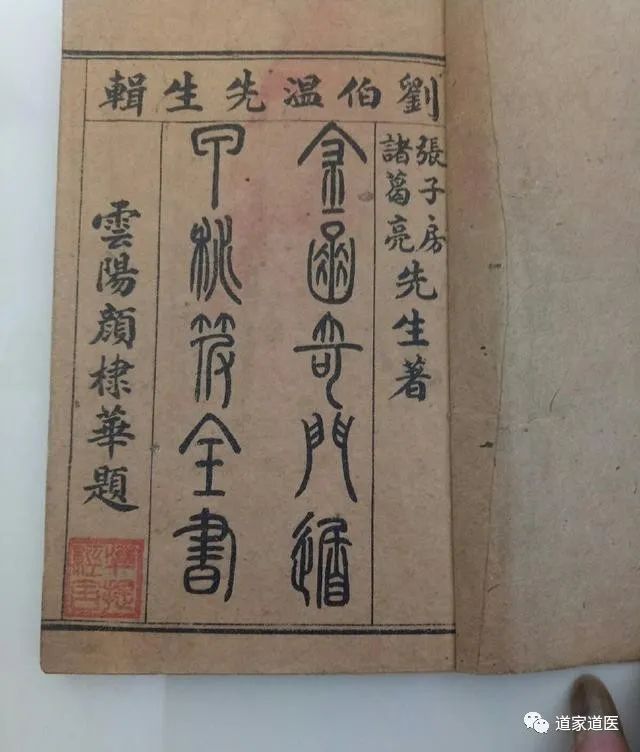 劉伯温先生輯
張子房
諸葛亮
先生著
金函奇門遁
甲秘笈全書
雲陽顔棣華題
道家道医